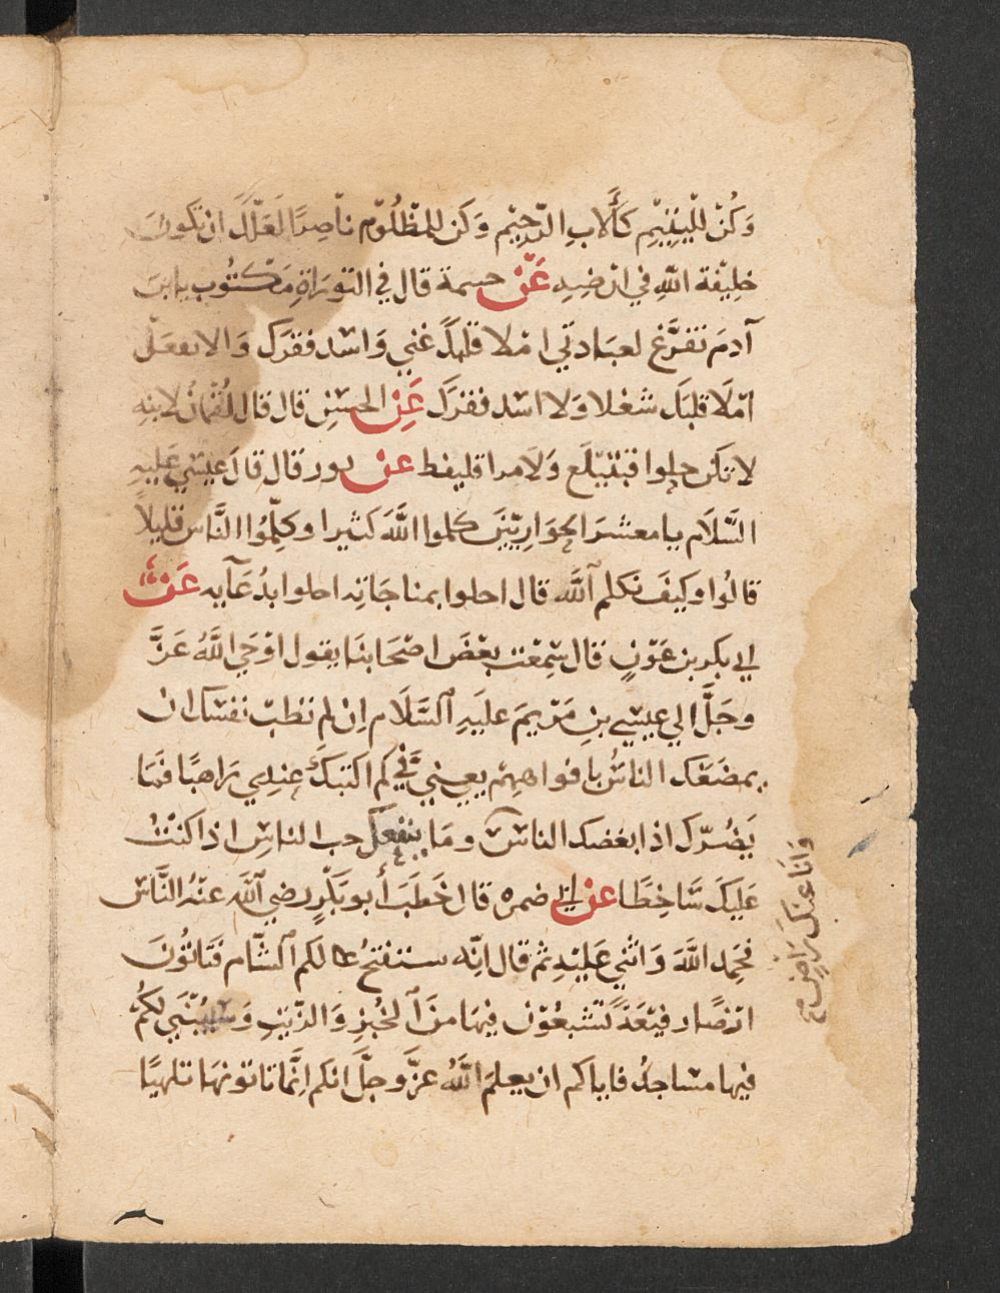 وَكُنْ لِلْيَتِيْمِ كَالْابِ الرَّحِيْمِ وَكُن لِلمَظْلُوْم نَاصِرًا لَعَلَّكَ ان تَكُونَ
خلِيْفة اللهِ في ارْضِهِ عَنْ خيثمة قال في التورَاةِ مَكْتُوب يا ابنَ
آدمَ تفرَّغ لعبَادتي امْلا قلبكَ غني وَاسد فقرَك وَالا تفعَلْ
امْلَا قلبَك شغلا وَلا اسد فقرَك عَنِ الحسَنِ قال قال لُقمَانُ لابنِهِ
لا تكن حلوا فتبْتلَع وَلا مرا فتلفظ عن ثور قال قال عيسَي عليهِ
السَّلَام يا معشرَ الحوَارِيّيْنَ كلموا اللهَ كثيرا وكلِّمُوا النَّاس قليلاً
قالوا وكيفَ نكلم اللهَ قال اخلوا بمناجَاتِه اخلوا بدُعَآيه عَنْ
ابي بكر بن عَوْنٍ قال سَمِعْت بعْضَ اصْحَابنَا يقول اوْحَي اللهُ عَزَّ
وجَلَّ الي عيسي بنِ مَرْيمَ عليَهِ السَّلَام اِن لم تطبْ نفسَك ان
يمضغَكَ الناسُ بافواههِمْ يعني فِيَّ لم اكتبكَ عِندي رَاهبًا فمَا
يَضُرّك اذا ابغضك الناسُ ومَا ينفعك حب الناسِ اذا كنتُ
عَليكَ سَاخِطًا عنْ ابي ضمره قال خَطَبَ أبو بَكْرٍ رضي اللهُ عنْهُ النَّاسَ
فحَمِد اللهَ وَاثني عَليْهِ ثم قال انّه ستفتحُ لكم الشَّام فتَاتوْنَ
ارْضًا رفيْعَةً تشبعُوْن فيهَا منَ الخبْزِ وَالزّيتِ وَسَيُبْنَي لكُمْ
فيها مسَاجدُ فاياكم ان يعلمَ اللهُ عزّ وجلّ انكم انّما تاتونهَا تلهيًا
وَانَا عنكَ رَاضٍ صح